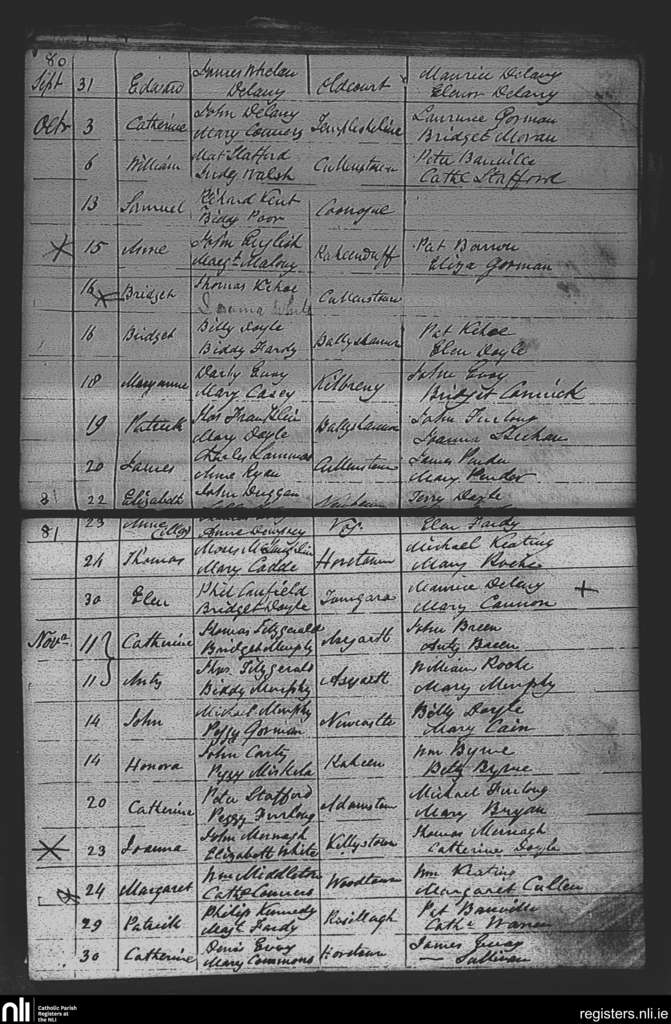 80
James Whelan Maurice Delany
Sept 31 Edward Delany Oldcourt Elenor Delany
John Delany Laurence Gorman
Octr 3 Catherine Mary Connors Templesheline Bridget Moran
Mat Stafford Peter Banville
6 William Judy Walsh Cullenstown Cathe Stafford
Richard Kent
13 Samuel Biddy Poor Coonogue
John English Pat Barron
15 Anne Margt Malony Raheenduff Eliza Gorman
Thomas Kehoe
16 Bridget Cullenstown
Billy Doyle Pat Kehoe
16 Bridget Biddy Fardy Ballyshannon Elen Doyle
Darby Evoy John Evoy
18 Maryanne Mary Casey Kilbreny Bridget
Thos Franklin John Furlong
19 Patrick Mary Doyle Ballyshannon Joanna
Charles James
20 James Anne Ryan Cullenstown Mary
81 22 Elizabeth John Duggan Terry Doyle
81 23 Anne Anne Dempsey Elen Fardy
Michael Keating
24 Thomas Mary Codde Horetown Mary Roche
Phil Canfield Maurice Delany
30 Elen Bridget Doyle Tomgara Mary Cannon
Thomas Fitzgerald John Breen
Novr 11 Catherine Bridget Murphy Assgarth Anty Breen
Thos Fitzgerald William Roche
11 Anty Biddy Murphy Assgarth Mary Murphy
Michael Murphy Billy Doyle
14 John Peggy Gorman Newcastle Mary Cain
John Carty Wm Byrne
14 Honora Peggy Miskela Raheen Betty Byrne
Peter Stafford Michael Furlong
20 Catherine Peggy Furlong Adamstown Mary Bryan
John Murnagh Thomas Murnagh
23 Joanna Elizabeth White Killystown Catherine Doyle
Wm Middleton Wm Keating
24 Margaret Cathe Connors Woodtown Margaret Cullen
Philip Kennedy Pat Banville
29 Patrick Margt Fardy Rosillagh Cathe Warren
Denis Evoy James Evoy
30 Catherine Mary Commons Horetown — Sullivan
nli Catholic Parish
Registers at
the NLI
registers.nli.ie